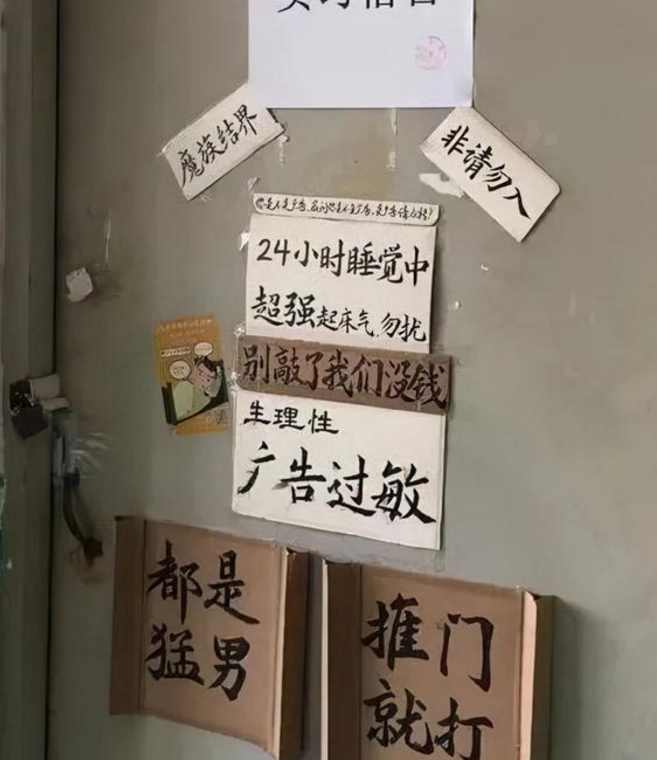 魔族结界
非请勿入
24小时睡觉中
超强起床气.勿扰
别敲了我们没钱
生理性
广告过敏
都是
猛男
推门
就打